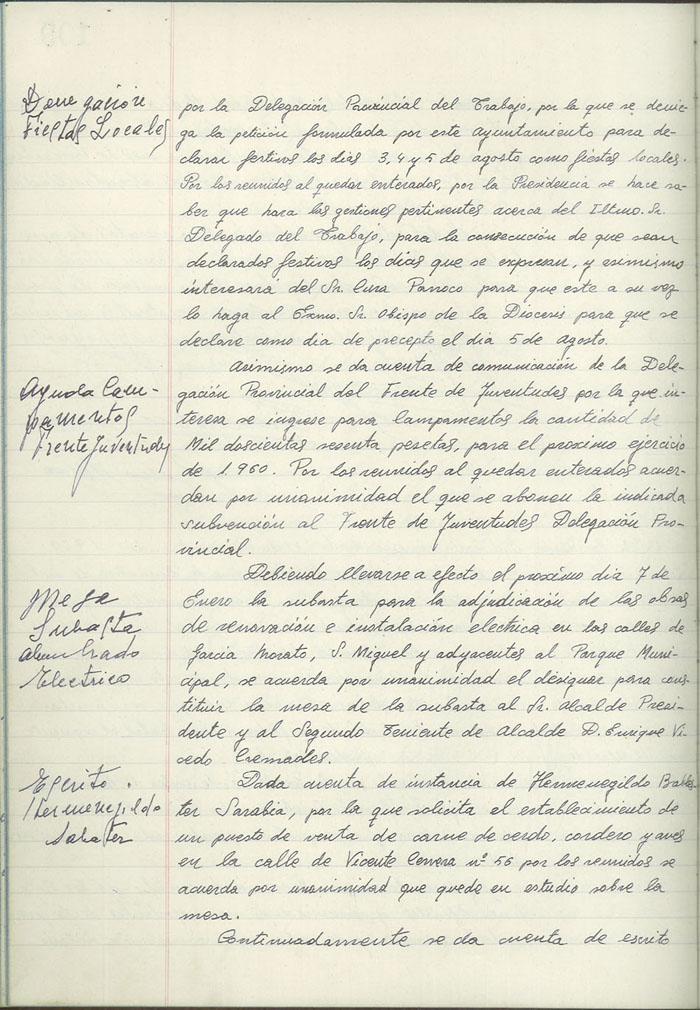 Denegación
Fiestas Locales
por la Delegación Provincial del Trabajo, por la que se denie-
ga la petición formulada por este Ayuntamiento para de-
clarar festivos los dias 3, 4 y 5 de agosto como fiestas locales.
Por los reunidos al quedar enterados, por la Presidencia se hace sa-
ber que hara las gestiones pertinentes acerca del Iltmo. Sr.
Delegado del Trabajo, para la consecución de que sean
declarados festivos los dias que se expresan, y asimismo
interesará del Sr. Cura Parroco para que este a su vez
lo haga al Exmo. Sr. Obispo de la Diocesis para que se
declare como dia de precepto el dia 5 de agosto.
Ayuda Cam-
pamentos
Frente Juventudes
Asimismo se da cuenta de comunicación de la Dele-
gación Provincial del Frente de Juventudes por la que in-
teresa se ingrese para Campamentos la cantidad de
Mil doscientas sesenta pesetas, para el proximo ejercicio
de 1.960. Por los reunidos al quedar enterados acuer-
dan por unanimidad el que se abonen la indicada
subvención al Frente de Juventudes Delegación Pro-
vincial.
Mesa
Subasta
alumbrado
Electrico
Debiendo llevarse a efecto el proximo dia 7 de
Enero la subasta para la adjudicación de las obras
de renovación e instalación electrica en las calles de
Garcia Morato, S. Miguel y adyacentes al Parque Muni-
cipal, se acuerda por unanimidad el designar para cons-
tituir la mesa de la subasta al Sr. Alcalde Presi-
dente y al Segundo Teniente de Alcalde D. Enrique Vi-
cedo Cremades.
Escrito
Hermenegildo
Sabater
Dada cuenta de instancia de Hermenegildo
ter Sarabia, por la que solicita el establecimiento de
un puesto de venta de carne de cerdo, cordero y aves
en la calle de Vicente Cervera nº 56 por los reunidos se
acuerda por unanimidad que quede en estudio sobre la
mesa.
Continuadamente se da cuenta de escrito